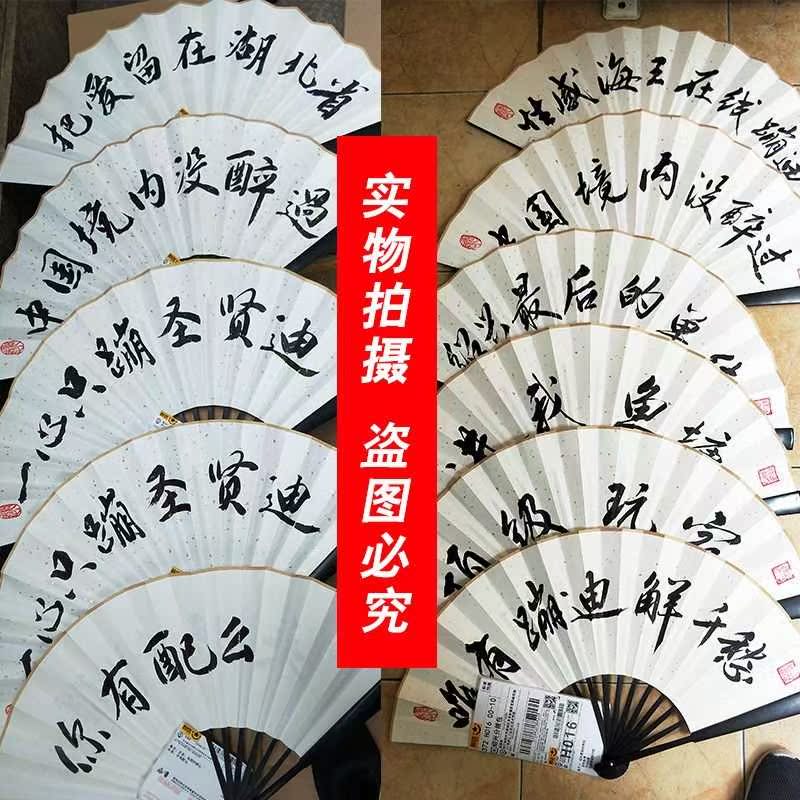 把爱留在湖北省
中国境内没醉過
一心只蹦圣贤迪
一心只蹦圣贤迪
你有配么
实物拍摄 盗图必究
性感海王在线蹦迪
中国境内没醉过
绍兴最后的单
我鱼塘
百级玩家
唯有蹦迪解千愁
072 H016 00-10
H016